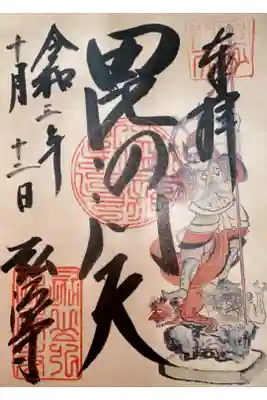 奉拝
毘沙門天
令和三年
十月十二日
弘法寺